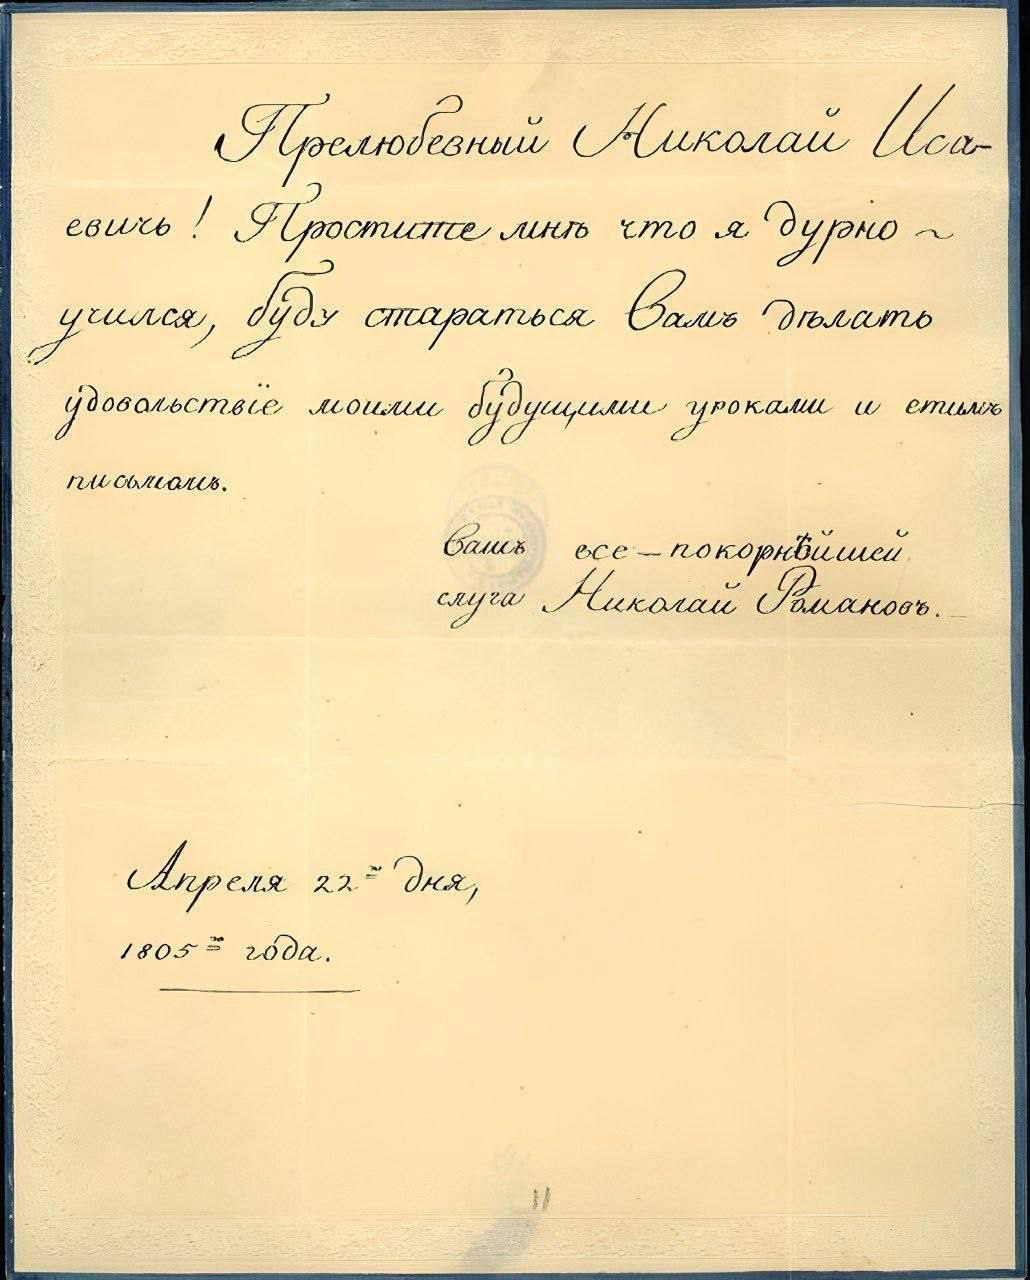 Прелюбезный Николай Иса-
евичь! Простите мнѣ что я дурно ~
учился, буду стараться Вамъ дѣлать
удовольствïе моими будущими уроками и етимъ
письмомъ.
Вашъ все-покорнѣйшей
слуга Николай Романовъ.
Апреля 22го дня,
1805го года.